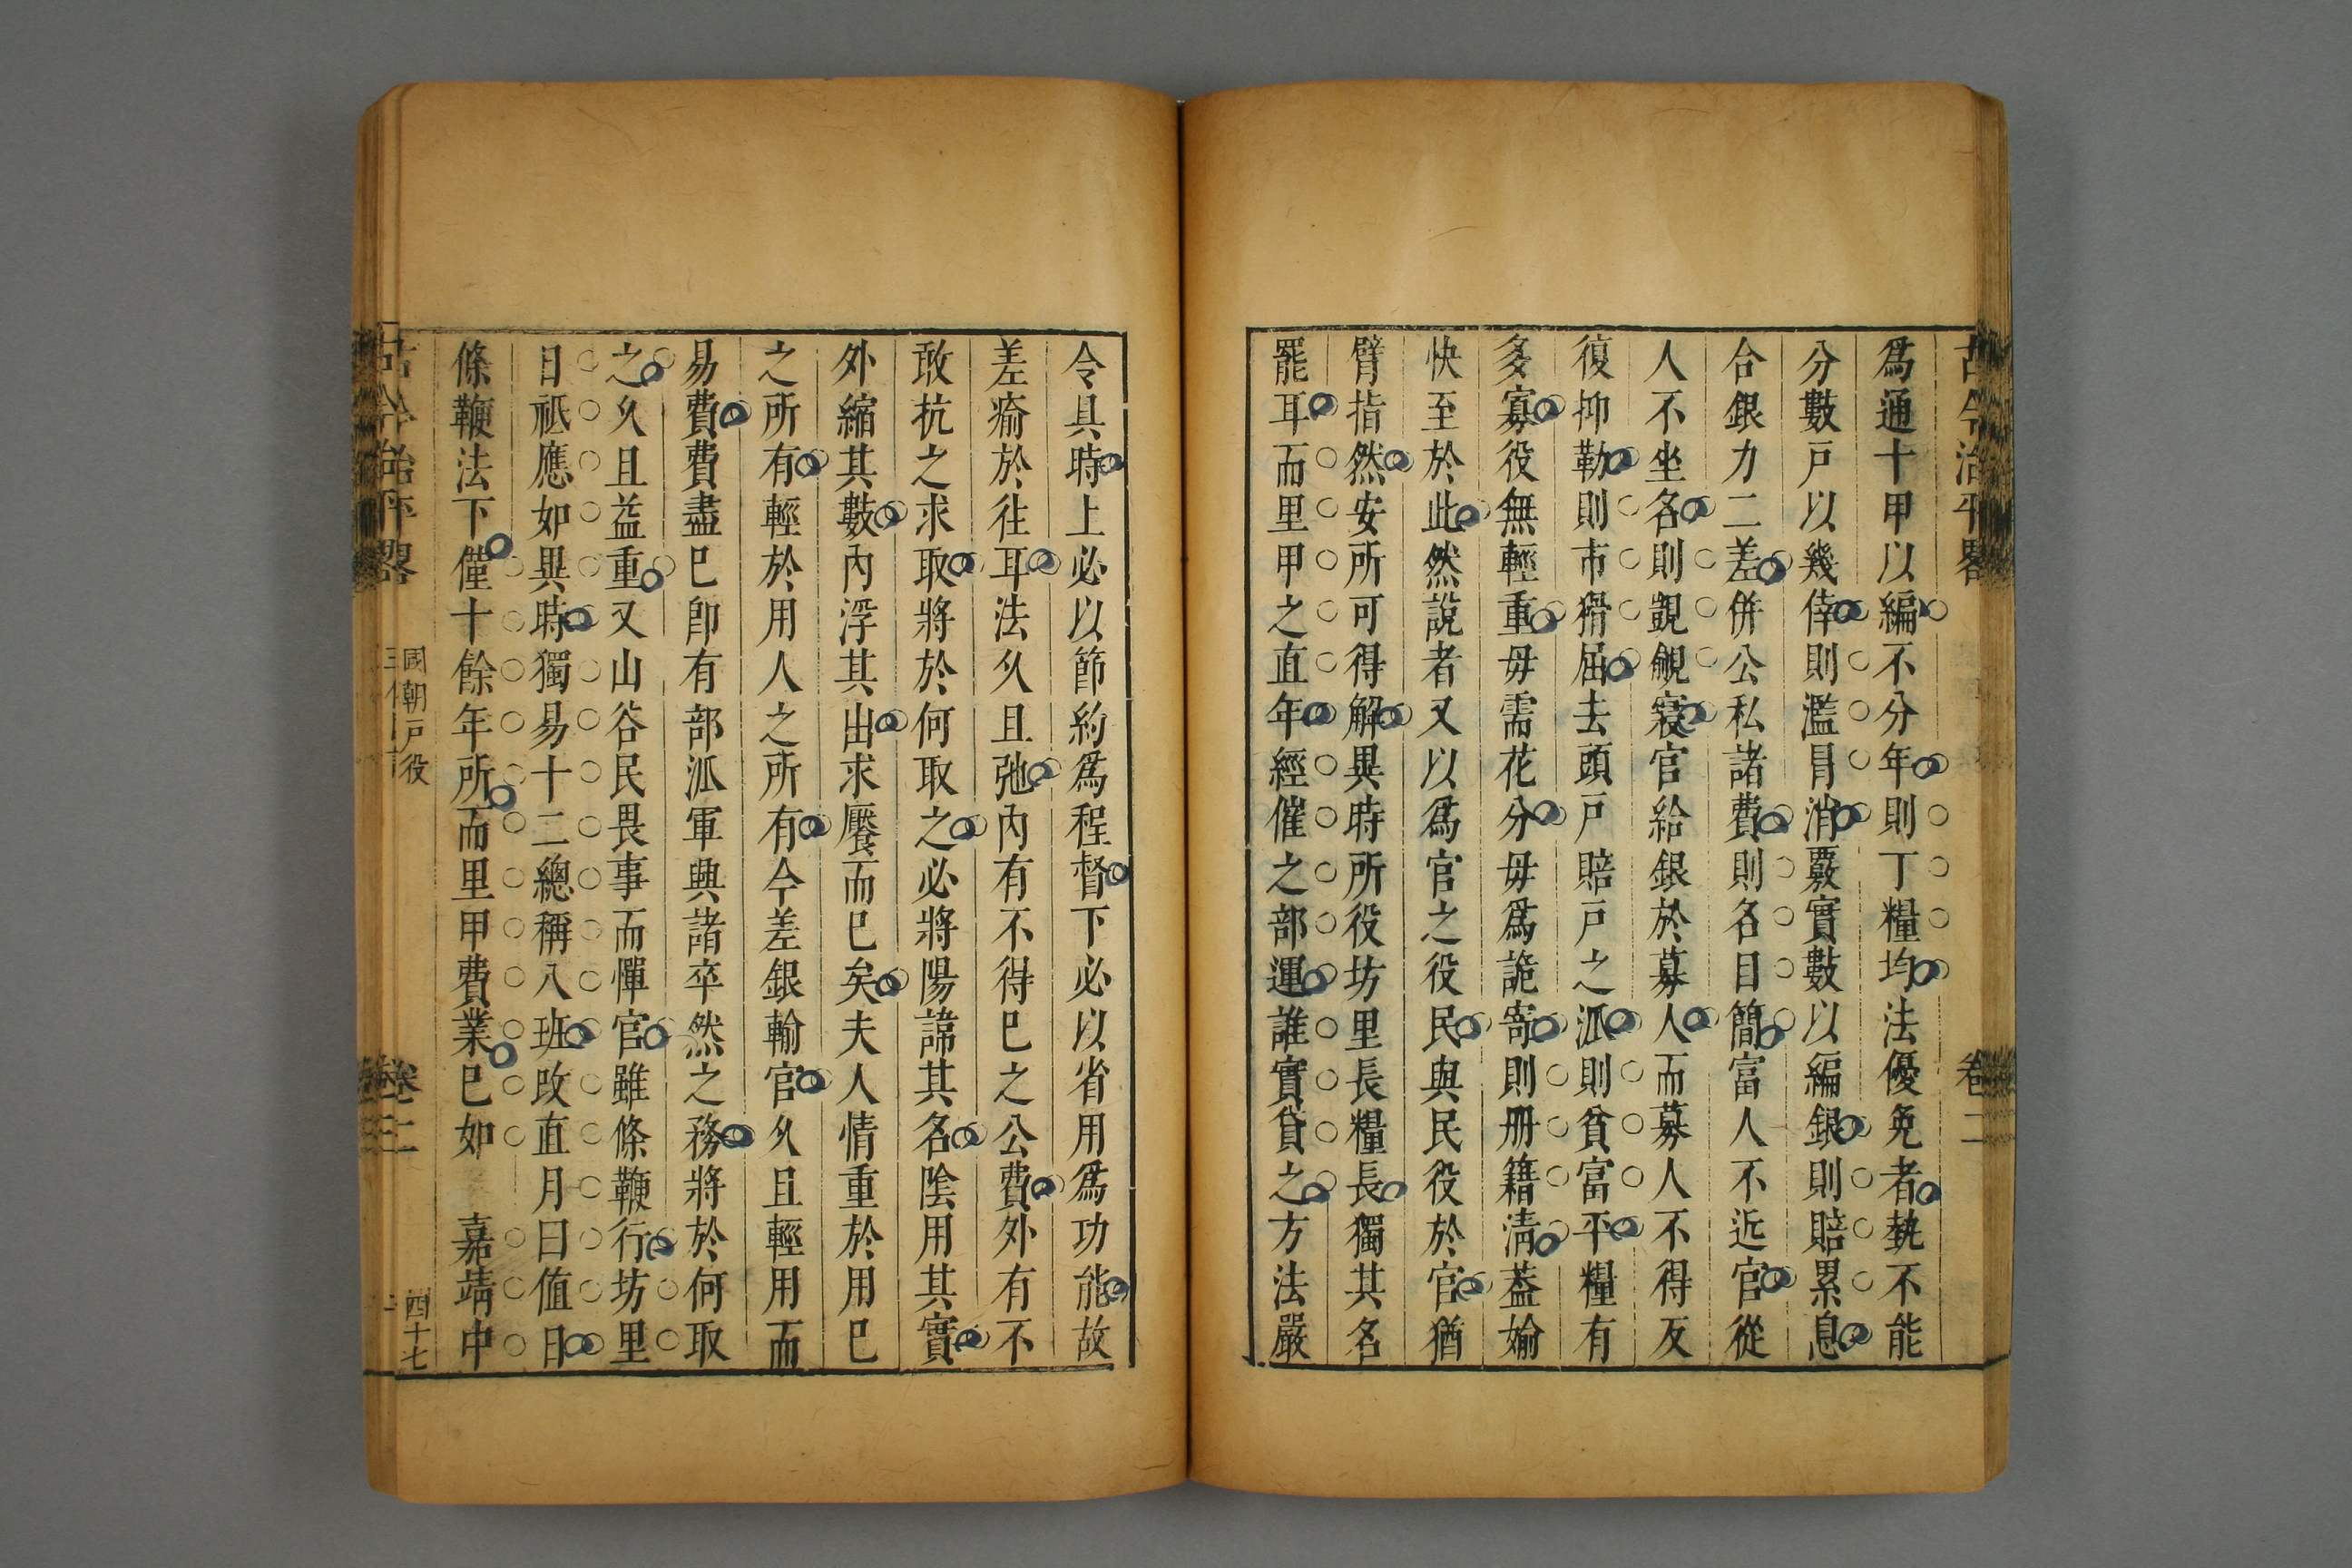 古今治平畧
卷二
爲通十甲以編不分年則丁糧均法優免者埶不能
分數戸以幾倖則濫冒消覈實數以編銀則賠累息
合銀力二差併公私諸費則名目簡富人不近官從
人不坐各則覬覦寢官給銀於募人而募人不得反
復抑勒則市猾屈去頭戸賠戸之派則貧富平糧有
多寡役無輕重毋需花分毋爲詭寄則册籍清葢媮
快至於此然説者又以爲官之役民與民役於官猶
臂指然安所可得解異時所役坊里長糧長獨其名
罷耳而里甲之直年經催之部運誰實貸之方法嚴
令具時上必以節約爲程督下必以省用爲功能故
差瘉於往耳法久且弛內有不得已之公費外有不
敢抗之求取將於何取之必將陽諱其名陰用其實
外縮其數內浮其出求饜而已矣夫人情重於用已
之所有輕於用人之所有今差銀輸官久且輕用而
易費費盡已卽有部派軍興諸卒然之務將於何取
之久且益重又山谷民畏事而憚官雖條鞭行坊里
日祗應如異時獨易十二總稱八班改直月曰值日
條鞭法下僅十餘年所而里甲費業已如 嘉靖中
古今治平畧
國朝戸役
卷二
四十七